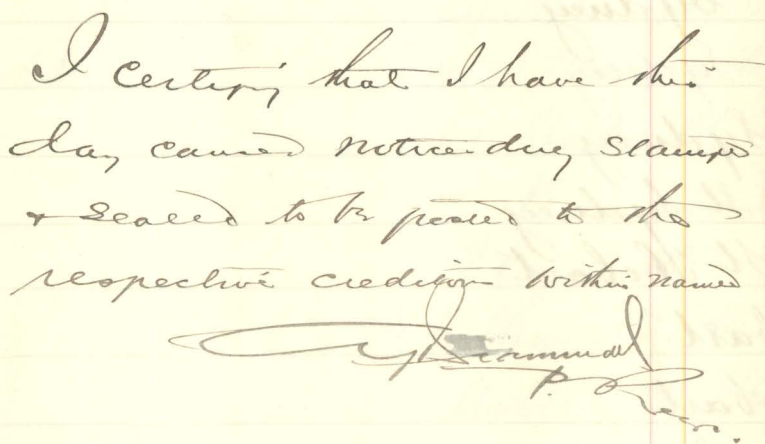 I certify that I have this
day caused notices duly stamped
& sealed to be posted to the
respective creditors within named
P. Regr.